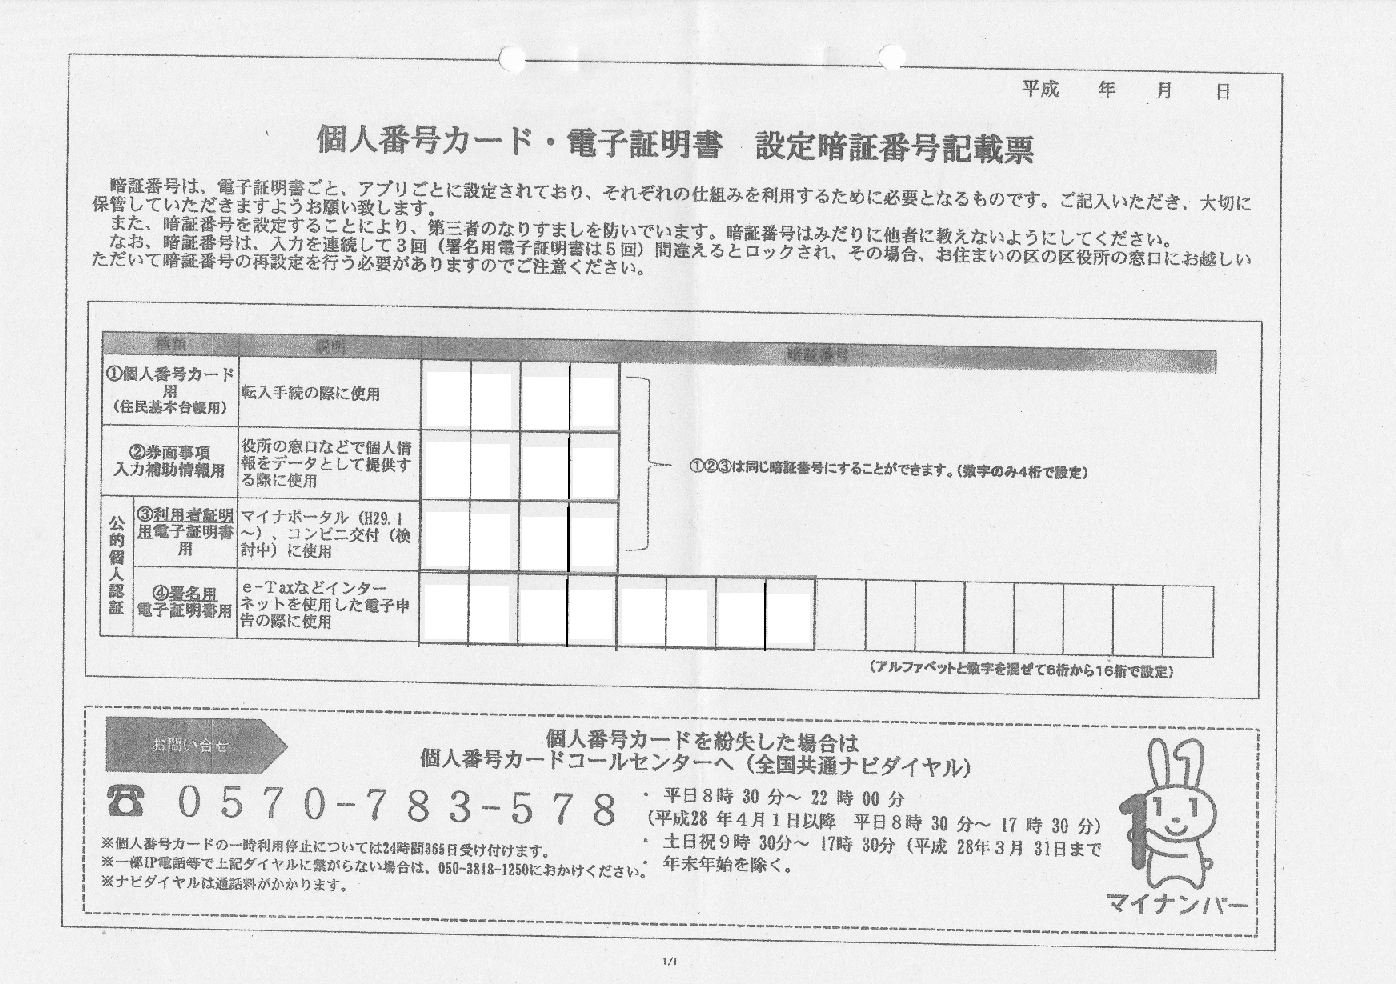 平成　　年　　月　　日
個人番号カード・電子証明書　設定暗証番号記載票
暗証番号は、電子証明書ごと、アプリごとに設定されており、それぞれの仕組みを利用するために必要となるものです。ご記入いただき、大切に
保管していただきますようお願い致します。
また、暗証番号を設定することにより、第三者のなりすましを防いでいます。暗証番号はみだりに他者に教えないようにしてください。
なお、暗証番号は、入力を連続して３回（署名用電子証明書は５回）間違えるとロックされ、その場合、お住まいの区の区役所の窓口にお越しい
ただいて暗証番号の再設定を行う必要がありますのでご注意ください。
種類　説明　暗証番号
①個人番号カード
用
（住民基本台帳用）
転入手続の際に使用
②券面事項
入力補助情報用
役所の窓口などで個人情
報をデータとして提供す
る際に使用
①②③は同じ暗証番号にすることができます。（数字のみ4桁で設定）
公的個人認証
③利用者証明
用電子証明書
用
マイナポータル（H29.1
～）、コンビニ交付（検
討中）に使用
④署名用
電子証明書用
e－Taxなどインター
ネットを使用した電子申
告の際に使用
（アルファベットと数字を混ぜて6桁から16桁で設定）
お問い合せ
個人番号カードを紛失した場合は
個人番号カードコールセンターへ（全国共通ナビダイヤル）
☎ ０５７０-７８３-５７８
・ 平日８時 30 分～ 22 時 00 分
（平成28 年４月１日以降　平日８時 30 分～ 17 時 30 分）
・ 土日祝９時 30分～ 17時 30分（平成 28年３月 31日まで
・ 年末年始を除く。
※個人番号カードの一時利用停止については24時間365日受け付けます。
※一部IP電話等で上記ダイヤルに繋がらない場合は、050-3818-1250におかけください。
※ナビダイヤルは通話料がかかります。
1
マイナンバー
1/1